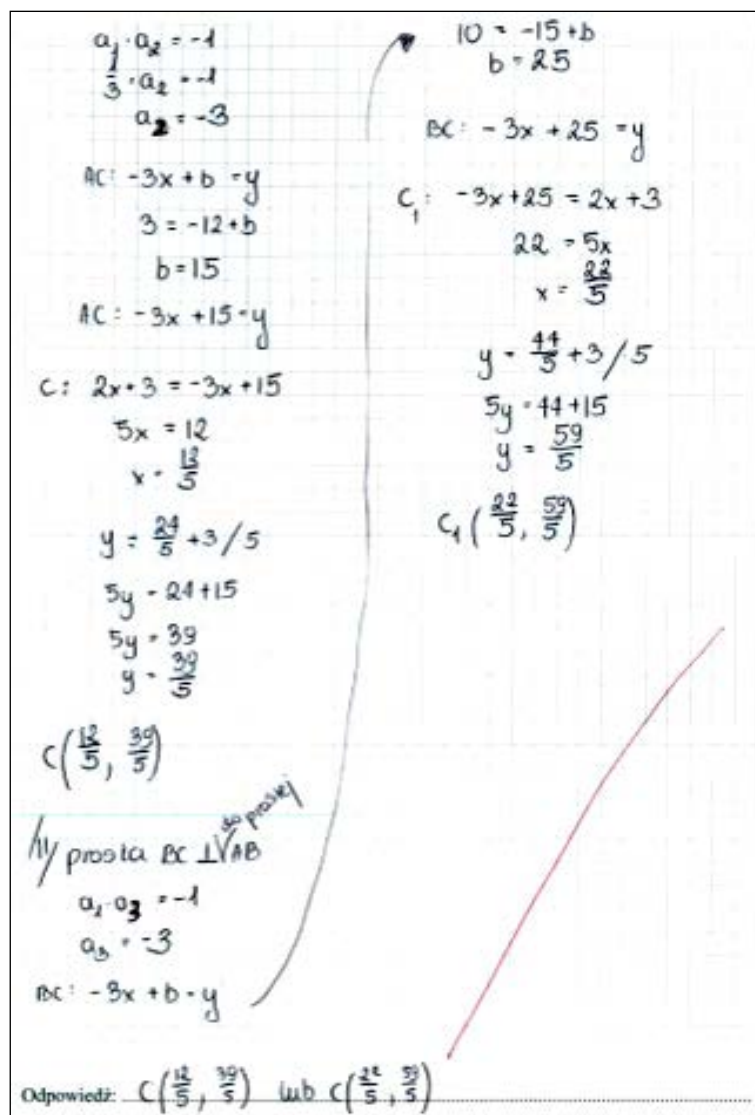 a₁·a₂ = -1
1/3·a₂ = -1
a₂ = -3
AC: -3x + b = y
3 = -12 + b
b = 15
AC: -3x + 15 = y
C: 2x + 3 = -3x + 15
5x = 12
x = 12/5
y = 24/5 + 3 /·5
5y = 24 + 15
5y = 39
y = 39/5
C(12/5, 39/5)
II/ prosta BC ⊥ do prostej AB
a₁·a₃ = -1
a₃ = -3
BC: -3x + b = y
10 = -15 + b
b = 25
BC: -3x + 25 = y
C₁: -3x + 25 = 2x + 3
22 = 5x
x = 22/5
y = 44/5 + 3 /·5
5y = 44 + 15
y = 59/5
C₁(22/5, 59/5)
Odpowiedź: C(12/5, 39/5) lub C(22/5, 59/5)